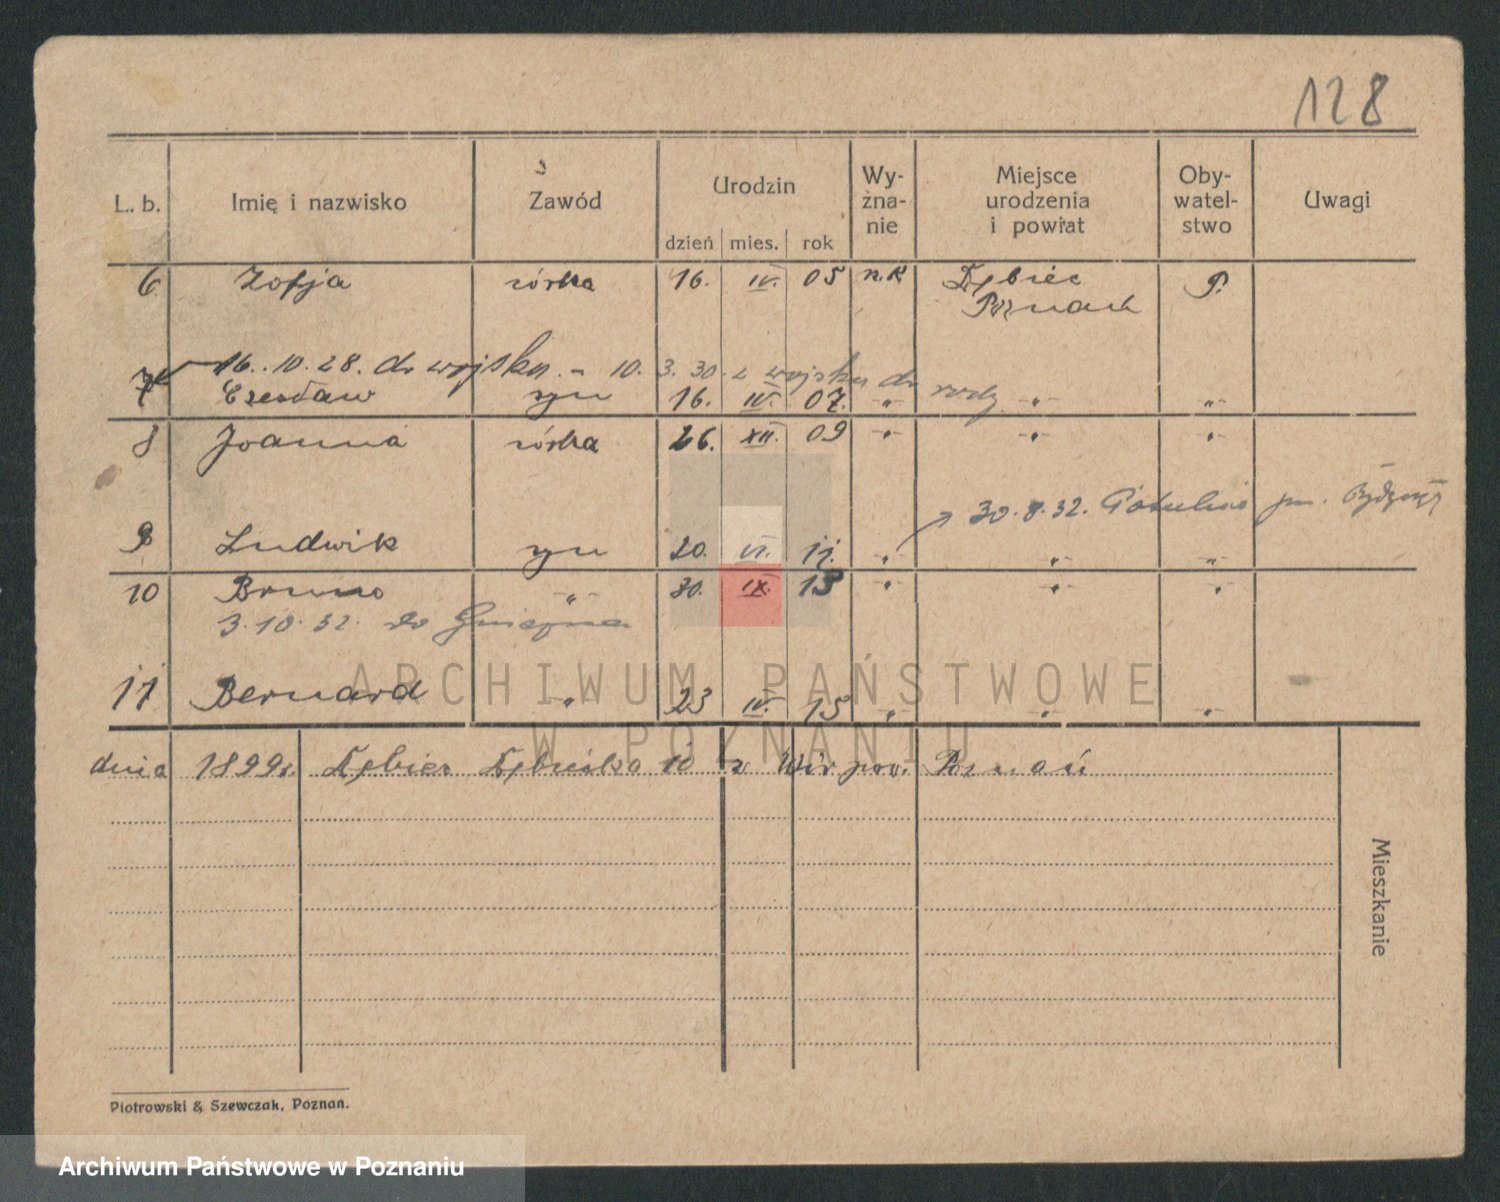 128
L. b. Imię i nazwisko Zawód Urodzin Wy-żna-nie Miejsce urodzenia i powiat Oby-watel-stwo Uwagi
dzień mies. rok
6 Zofja córka 16. IV. 05 r.k Dębiec P.
Poznań
16.10.28. do wojska. - 10.3.30 z wojska do
7 Czesław syn 16. IV. 07. " " "
8 Joanna córka 26. XII. 09 " " "
30.8.32. Potulice pow. Bydgoszcz
9 Ludwik syn 20. VI. 11. " " "
10 Bruno " 30. IX. 13 " " "
3.10.32. do Gniezna
11 Bernard " 23 IV. 15 " " "
ARCHIWUM PAŃSTWOWE
W POZNANIU
dnia 1899r. Dębiec Dębińska 10 z Wir pow. Poznań
Mieszkanie
Piotrowski & Szewczak, Poznań.
Archiwum Państwowe w Poznaniu